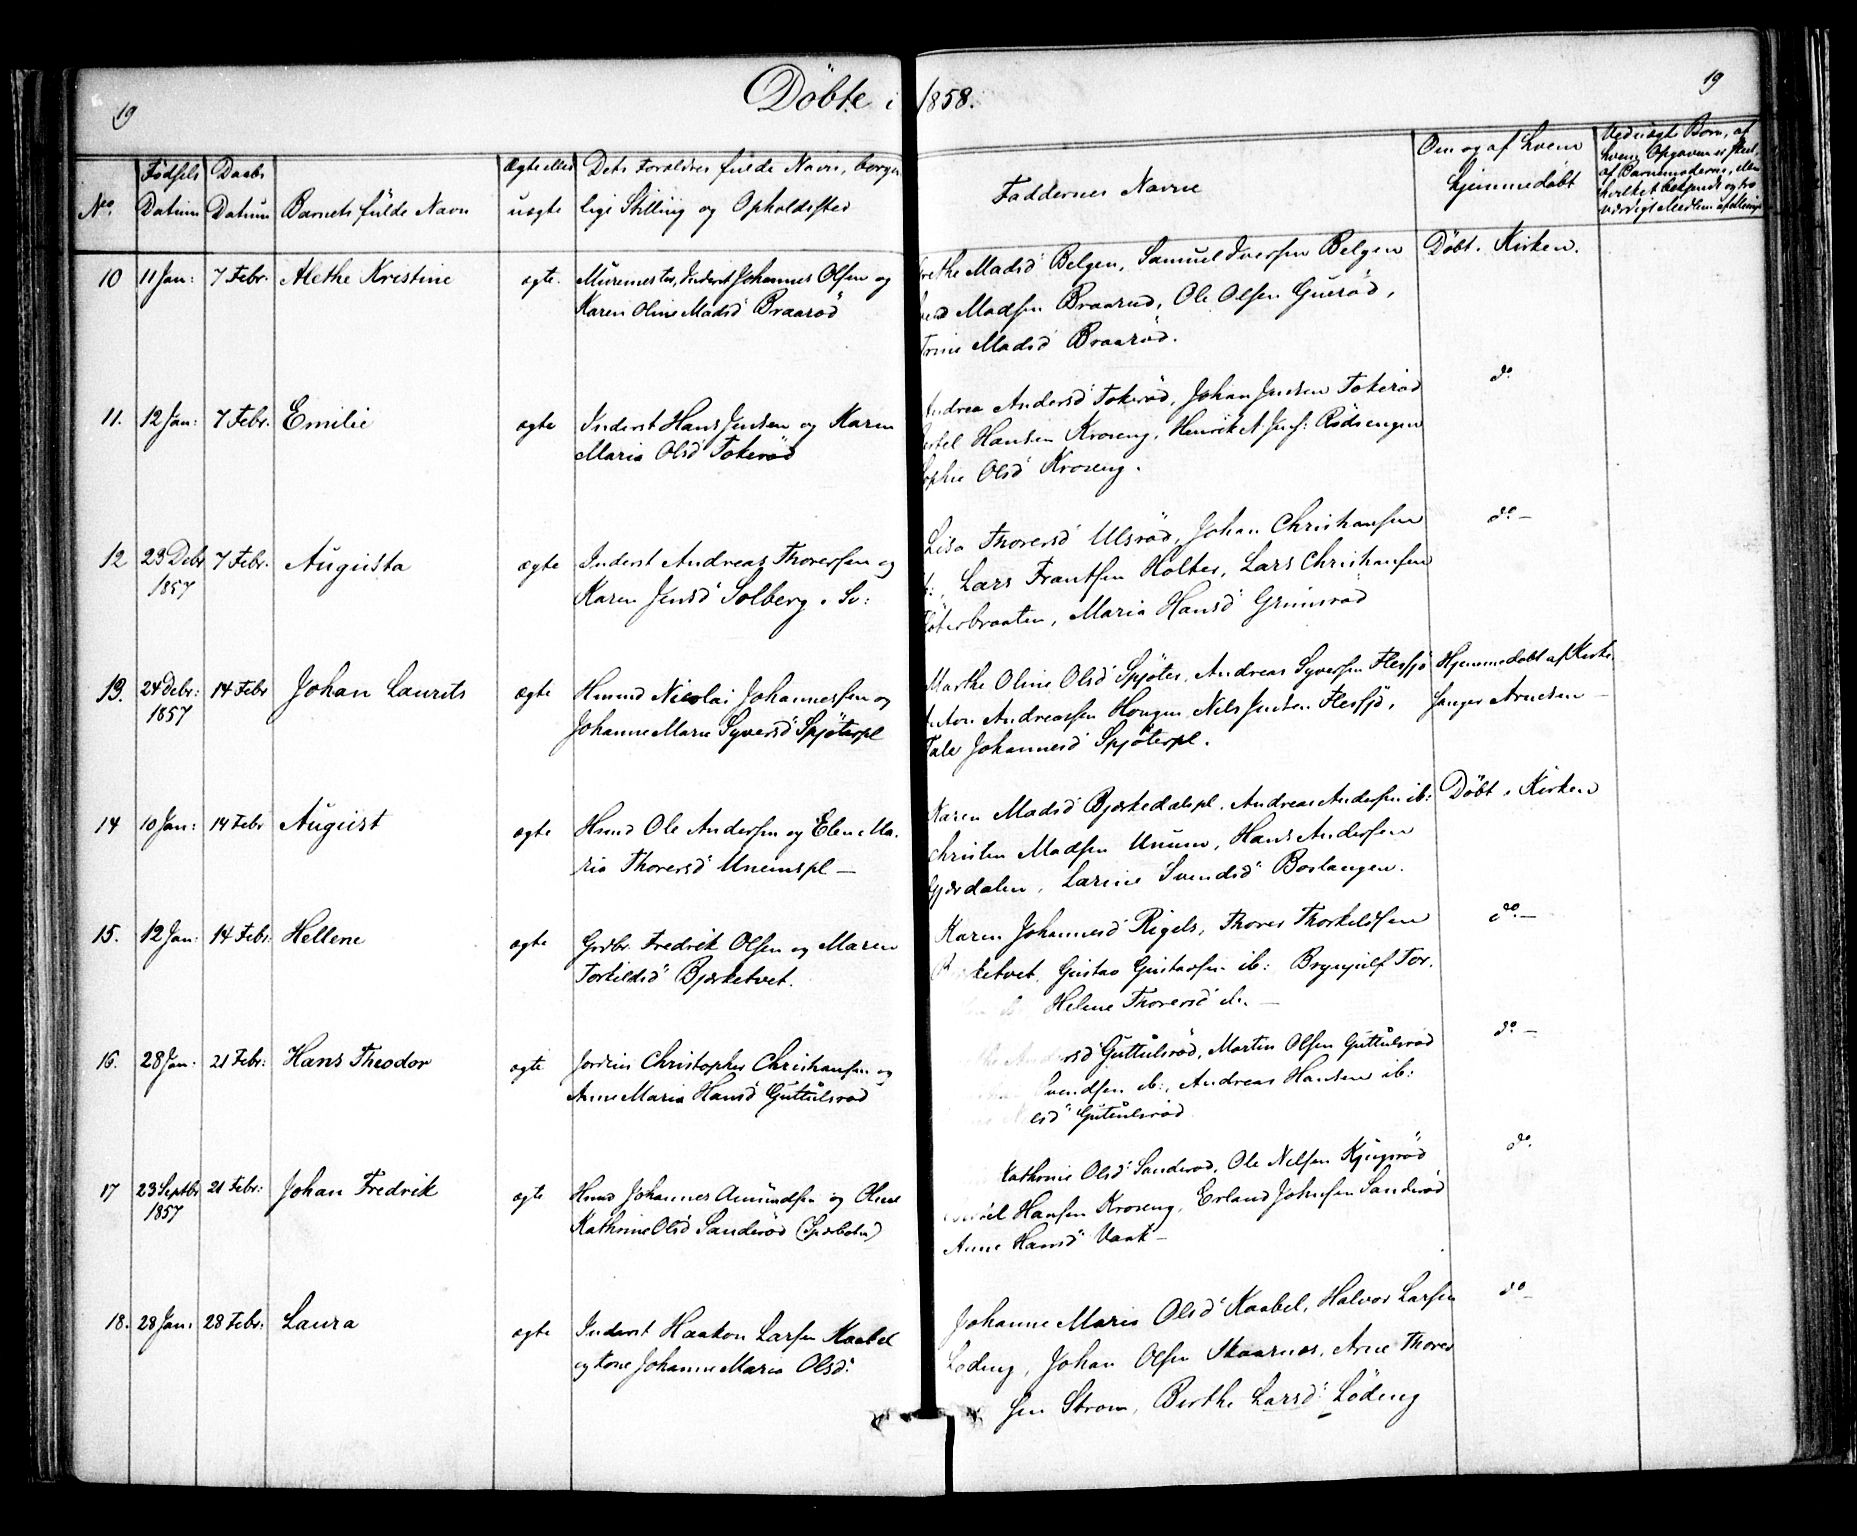 19
Döbte i 1858.
19
No.
Födsels Datum
Daabs Datum
Barnets fulde Navn
Ægte eller uægte
Dets Forældres fulde Navn, borgerlige Stilling og Opholdssted
Faddernes Navne
Om og af hvem hjemmedöbt
10 11 Jan: 7 Febr. Alethe Kristine ægte. Muremester, Inderst Johannes Olsen og
Karen Oline Madsd Braaröd
Madsd Belgen, Samuel Iversen Belgen Döbt i Kirken.
Madsen Braarud, Ole Olsen Gueröd,
Trine Madsd Braaröd.
11. 12 Jan: 7 Febr. Emilie ægte Inderst Hans Jensen og Karen
Maria Olsd Tokeröd
Andrea Andersd Tokeröd, Johan Jensen Tokeröd do
Hansen Kroseng, Henrik A Jens: Rödsengen
Sophie Olsd Kroseng.
12 23 Debr 1857 7 Febr. Augusta ægte Inderst Andreas Thoresen og
Karen Jensd Solberg i Sv:
Lisa Thoresd Ulsröd, Johan Christiansen do
Lars Frantsen Holter, Lars Christiansen
Maria Hansd Grimsröd
13. 24 Debr: 1857 14 Febr Johan Laurits ægte Husmd Nicolai Johannessen og
Johanne Marie Syversd Spjöterpl
Marthe Oline Olsd Spjöter, Andreas Syversen Flesjö Hjemmedöbt af Kirke-
Anton Andreassen Hougen, Nils Jensen Flesjö, sanger Arnesen
Tale Johannesd Spjöterpl.
14 10 Jan: 14 Febr August ægte Husmd Ole Andersen og Elen Ma-
ria Thoresd Unemspl
Karen Madsd Bjerkedalspl. Andreas Andersen ib: Döbt i Kirken
Christen Madsen Unum, Hans Andersen
Gjerdalen, Larine Svendsd Boslangen.
15. 12 Jan: 14 Febr: Hellene ægte Grdbr. Fredrik Olsen og Maren
Torkildsd Bjerketvet.
Karen Johannesd Rigels, Thores Thorkildsen do
Gustav Gustavsen ib: Brynjulf Tor-
Helene Thoresd ib.
16. 28 Jan: 21 Febr: Hans Theodor ægte Jordeier Christopher Christiansen og
Anne Maria Hansd Guttulsröd
Guttulsröd, Martin Olsen Guttulsröd do
Svendsen ib:, Andreas Hansen ib:
Guttulsröd
17 23 Septbr 1857 21 Febr: Johan Fredrik ægte Husmd Johannes Amundsen og Oline
Kathrine Olsd Sanderöd
Kathrine Olsd Sanderöd, Ole Nilsen Kjugeröd do
Hansen Kroseng, Erland Johnsen Sanderöd
Anne Hansd Vaak
18. 28 Jan: 28 Febr: Laura ægte Inderst Haakon Larsen Kaabel
og Kone Johanne Maria Olsd:
Johanne Maria Olsd Kaabel, Halvor Larsen do
Löding, Johan Olsen Skaarnæs, Arne Thore-
sen Strom, Berthe Larsd Löding